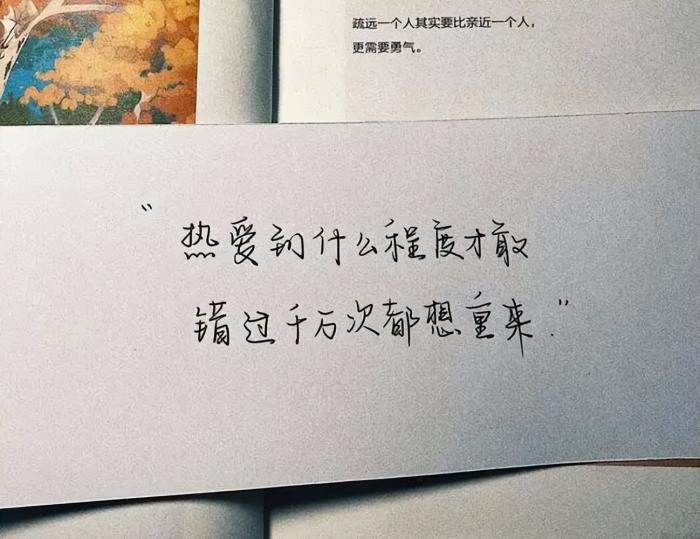 疏远一个人其实要比亲近一个人，
更需要勇气。
“热爱到什么程度才敢
错过千万次都想重来.”